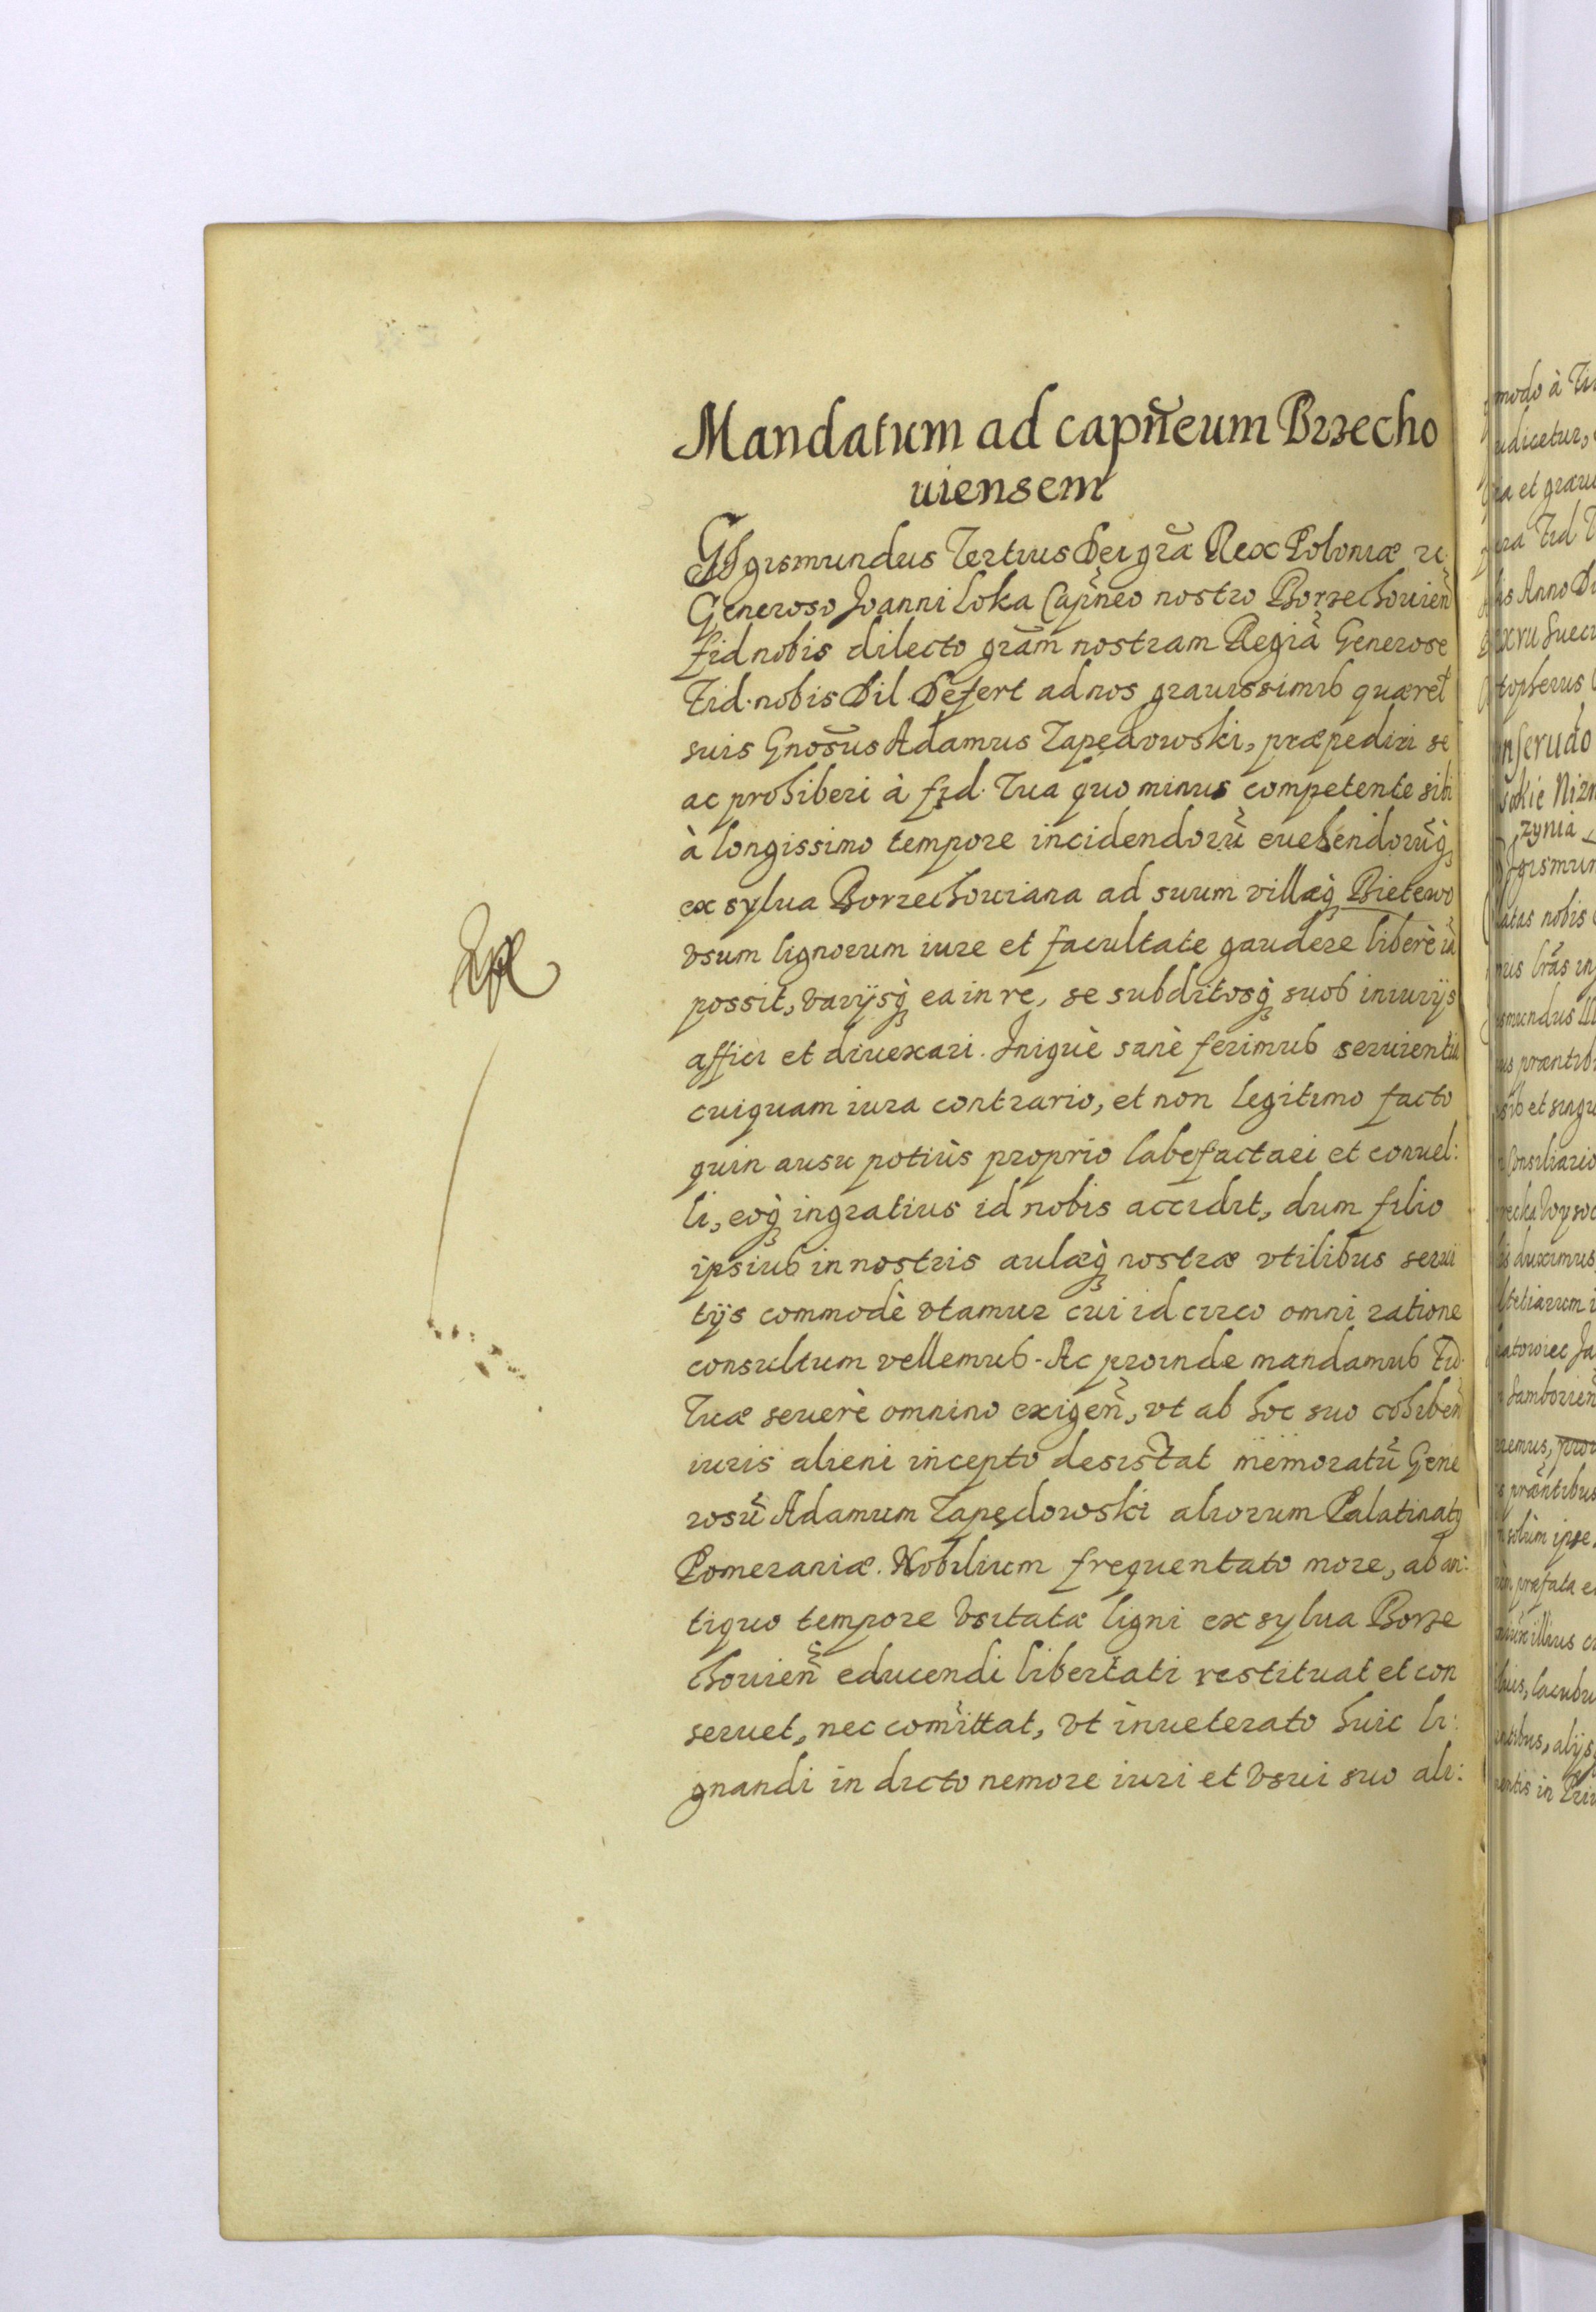 Mandatum ad capn̄eum Brzecho
uiensem
Sigismundus Tertius Dei gr̃a Rex Poloniæ
Generoso Joanni Loka Capn̄eo nostro Borzechouien̄
fid nobis dilecto grãm nostram Regiã Generose
Fid. nobis Dil Defert ad nos grauissimis quærel
suis Gnosus Adamus Zapędowski, præpediri se
ac prohiberi à fid. Tua quo minus competente sibi
à longissimo tempore incidendorũ euehendorũq̢
ex sylua Borzechouiana ad suum villæq̢ Bietewo
vsum lignorum iure et facultate gaudere liberè
possit, varijsq̢ ea in re, se subditosq̢ suos iniurijs
affici et diuexari. Iniquè sanè ferimus seruientiũ
cuiquam iura contrario, et non legitimo facto
quin ausu potiùs proprio labefactari et conuel:
li, eoq̢ ingratius id nobis accidit, dum filio
ipsius in nostris aulæq̢ nostræ vtilibus serui
tijs commodè vtamur cui id circo omni ratione
consultum vellemus. Ac proinde mandamus Fid.
Tuæ seuerè omnino exigen̄, vt ab hoc suo cohiben̄
iuris alieni incepto desistat memoratũ Gene
rosũ Adamum Zapędowski aliorum Palatinatꝯ
Pomeraniæ. Nobilium frequentato more, ab an:
tiquo tempore vsitatæ ligni ex sylua Borze
chouien̄ educendi libertati restituat et con
seruet, nec com̃ittat, vt inueterato huic li:
gnandi in dicto nemore iuri et vsui suo ali: